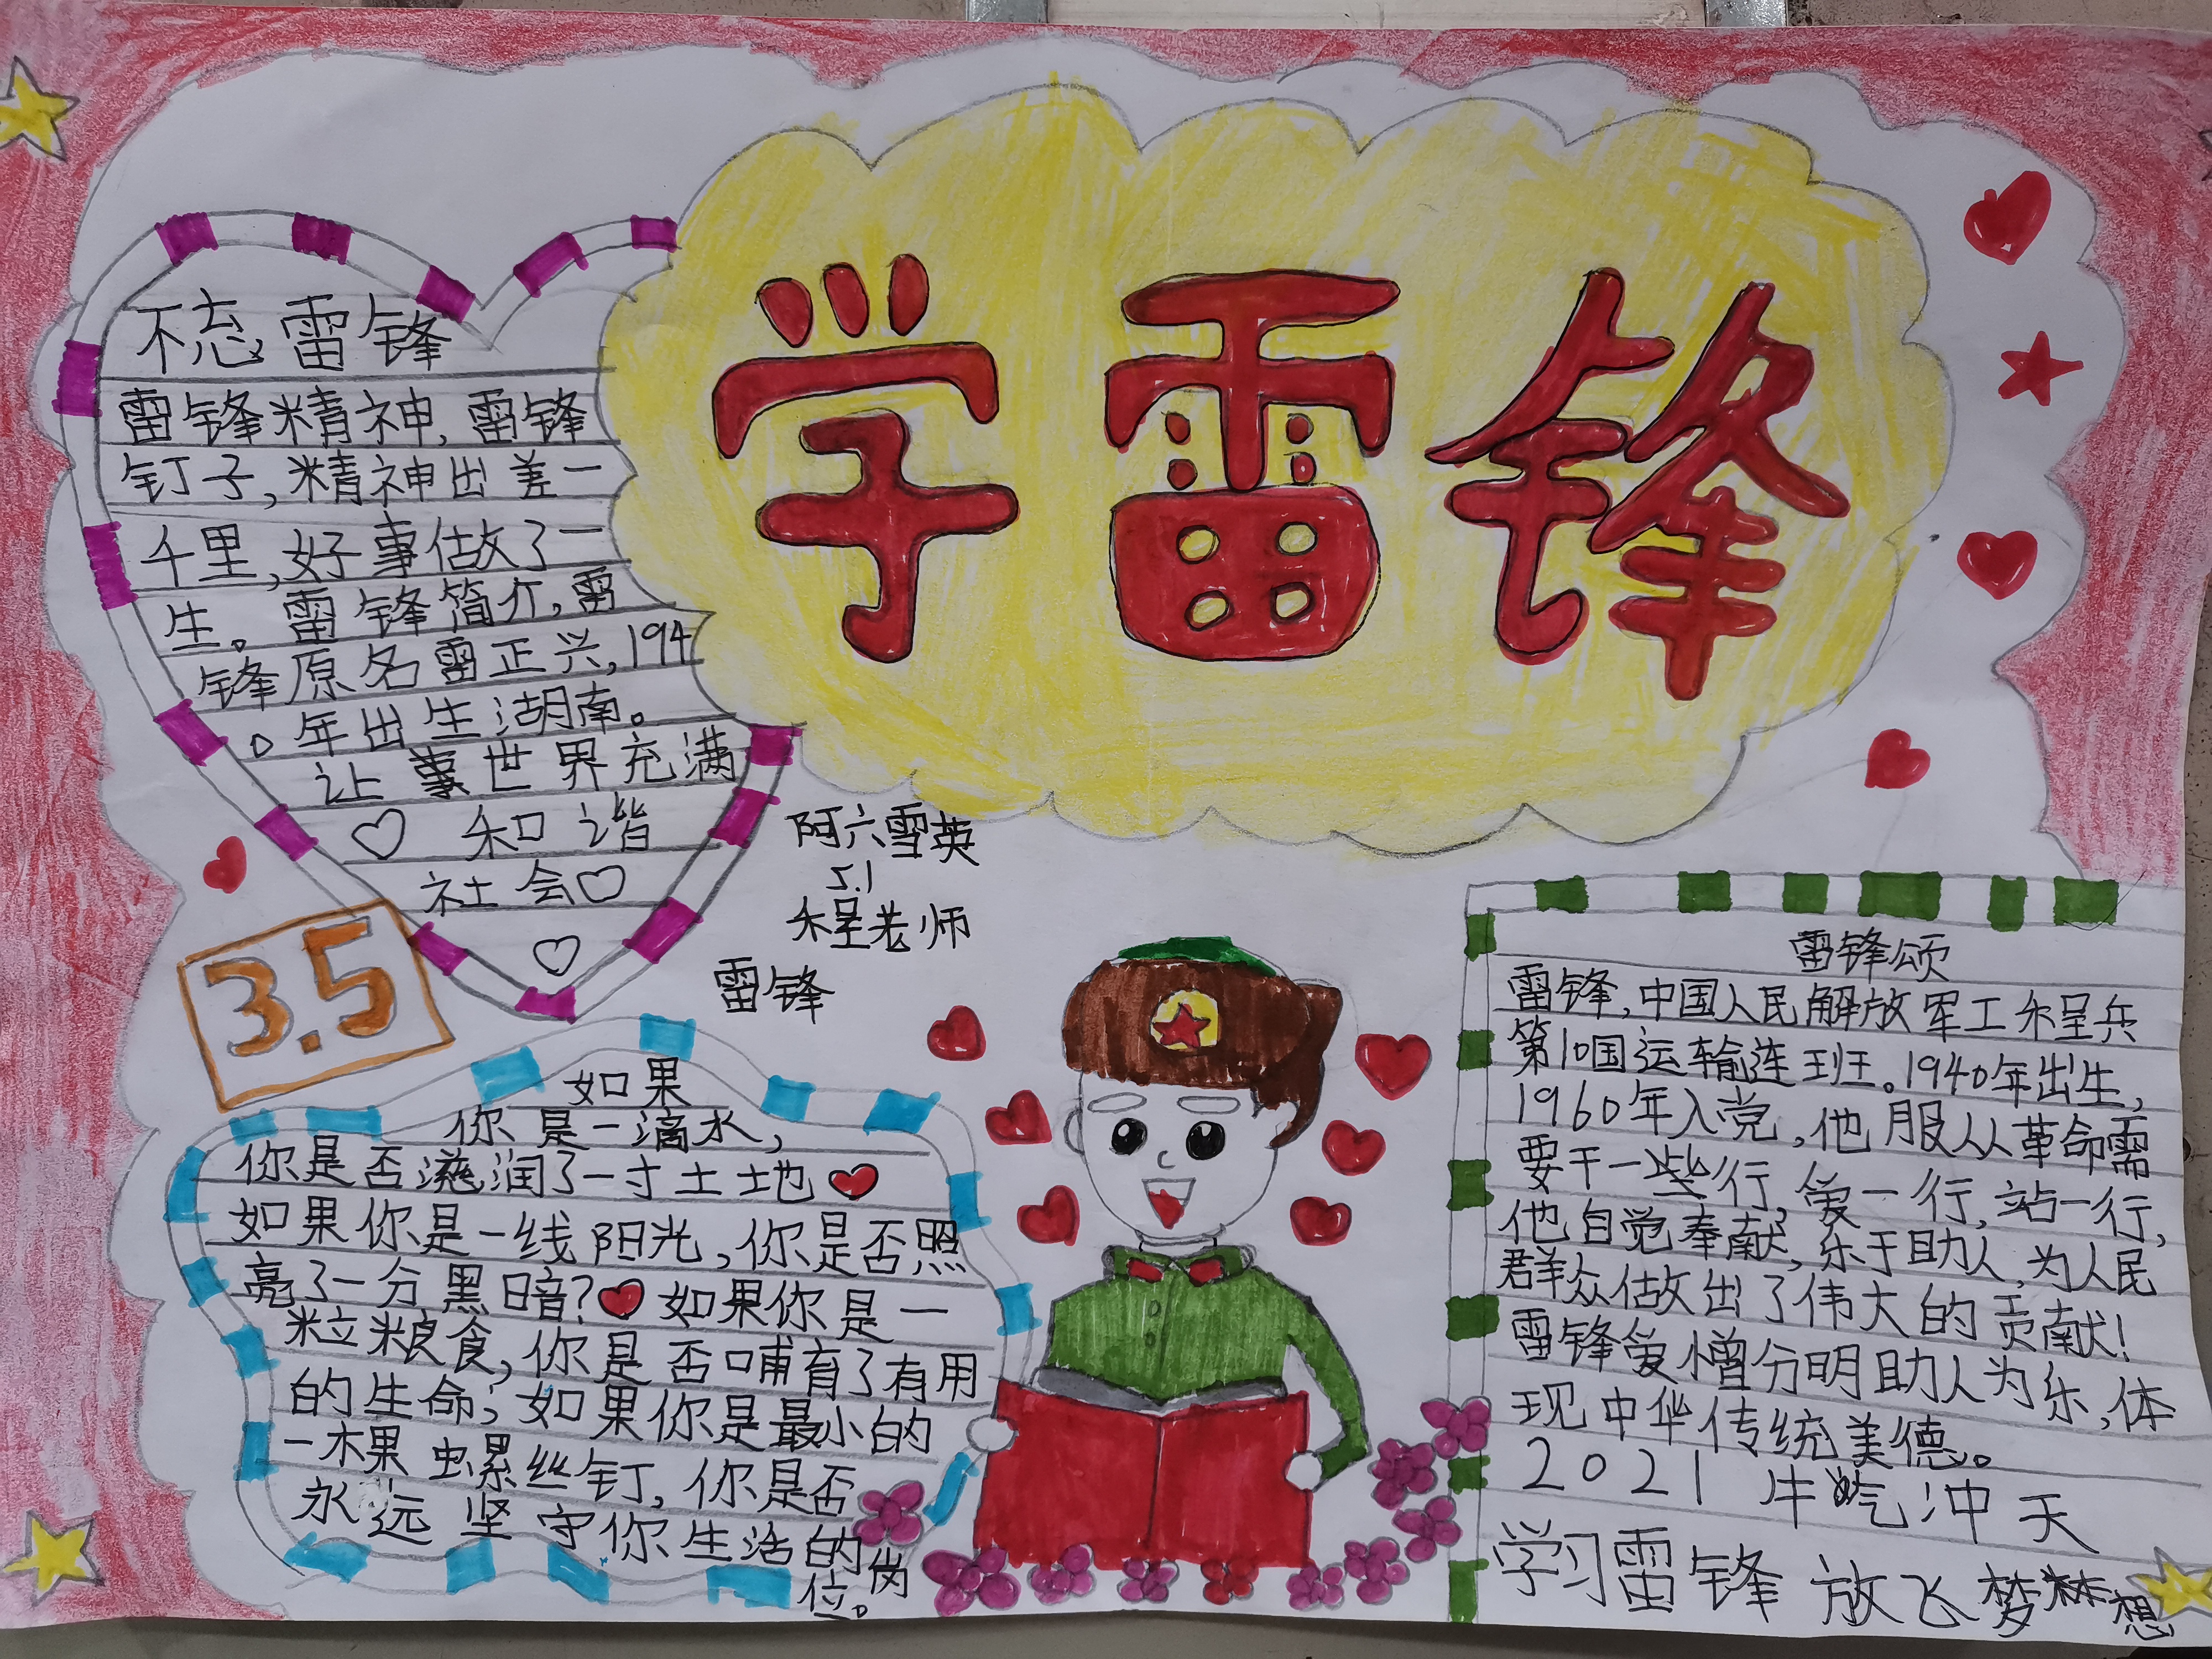 学雷锋
不忘雷锋
雷锋精神,雷锋
钉子,精神出差一
千里,好事做了一
生。雷锋简介,雷
锋原名雷正兴,194
0年出生湖南。
让世界充满
♡ 和谐
社会♡
♡
阿六雪英
5.1
老师
雷锋
3.5
如果
你是一滴水,
你是否滋润了一寸土地
如果你是一线阳光,你是否照
亮了一分黑暗?如果你是一
粒粮食,你是否哺育了有用
的生命;如果你是最小的
一螺丝钉,你是否
永远坚守你生活的岗
位。
雷锋颂
雷锋,中国人民解放军工兵
第10国运输连班。1940年出生,
1960年入党,他服从革命需
要干一些行,爱一行,站一行,
他自觉奉献,乐于助人,为人民
群众做出了伟大的贡献!
雷锋爱憎分明助人为乐,体
现中华传统美德。
2021 牛气冲天
学习雷锋 放飞梦想